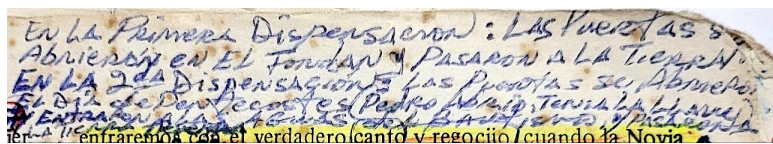 En La Primera Dispensacion: Las Puertas s
Abrieron en El Jordan y Pasaron A La Tierra
En La 2da Dispensacion Las Puertas se Abriero
El Dia de Pentecostes (Pedro Abrio, Tenia La Llave)
y Entraron A Las Aguas del Bautismo, y
La Tierra
entraremos con el verdadero canto y regocijo cuando la Novia